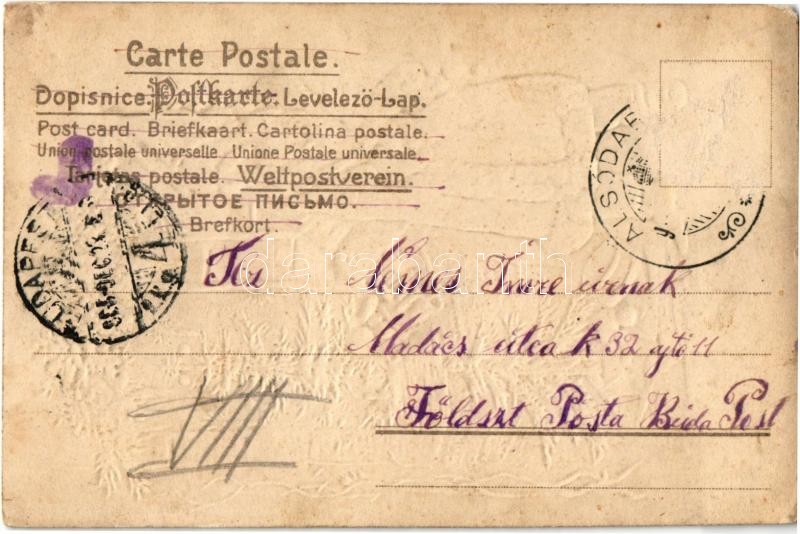 Carte Postale.
Dopisnice. Postkarte. Levelező-Lap.
Post card. Briefkaart. Cartolina postale.
Union postale universelle Unione Postale universale.
Tarjetas postale. Weltpostverein.
ОТКРЫТОЕ ПИСЬМО.
Brefkort.
BUDAPEST
ALSÓDA
darabanth.com
Imre úrnak
Madács utca k 32 ajtó 11
Földszt Posta Buda Pest
VIII